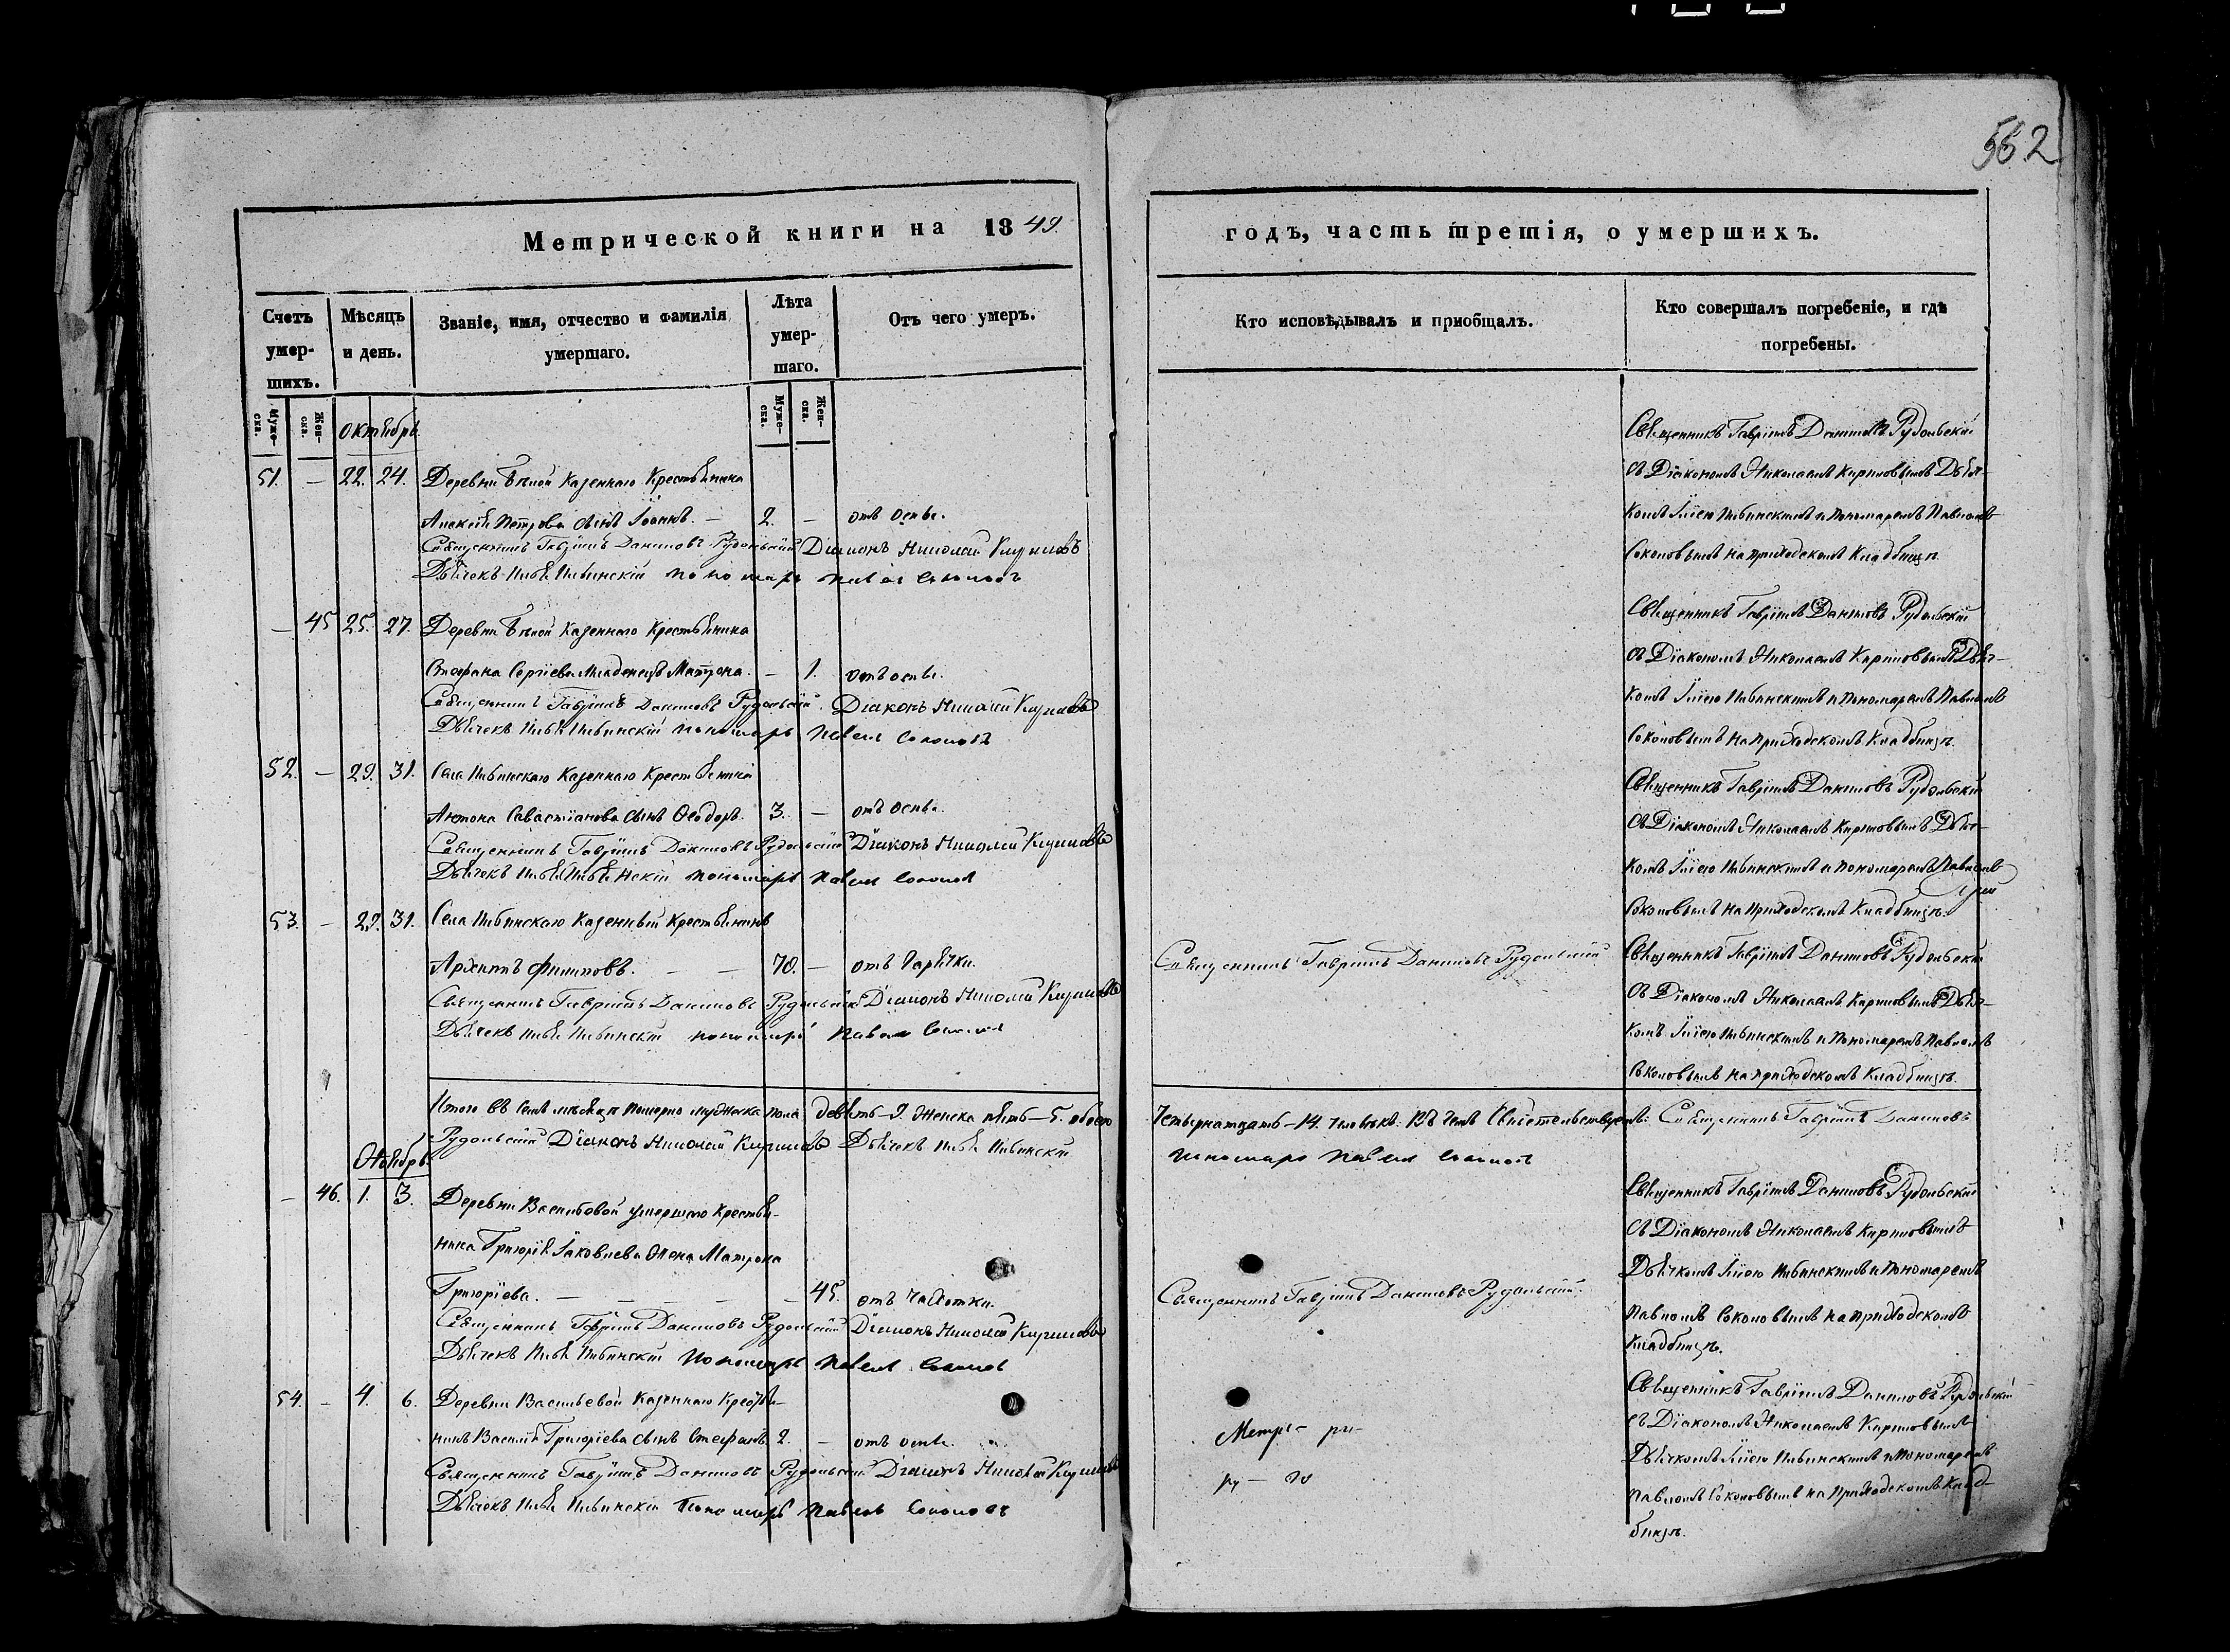 562
Метрической книги на 1849.
годъ, часть третія, о умершихъ.
Счетъ умер-шихъ.
Мѣсяцъ и день.
Званіе, имя, отчество и фамилія умершаго.
Лѣта умер-шаго.
Отъ чего умеръ.
Кто исповѣдывалъ и пріобщалъ.
Кто совершалъ погребеніе, и гдѣ погребены.
Муже-ска.
Жен-ска.
Муже-ска.
Жен-ска.
Октябрь.
51. — 22. 24. Деревни казеннаго крестьянина
Алексѣя Петрова сынъ Іоаннъ. — 2. — отъ оспы.
Священникъ Гавріилъ Даниловъ Рудольскій Діаконъ Николай Кириловъ
Дьячекъ Пибинскій пономарь Павелъ Соколовъ
Священникъ Гавріилъ Даниловъ Рудольскій
съ Діакономъ Николаемъ Кириловымъ Дьяч-
комъ Пибинскимъ и Пономаремъ Павломъ
Соколовымъ на приходскомъ кладбищѣ.
— 45 25. 27. Деревни казеннаго крестьянина
Стефана Сергіева младенецъ Матрона. — 1. отъ оспы.
Священникъ Гавріилъ Даниловъ Рудольскій. Діаконъ Николай Кириловъ
Дьячекъ Пибинскій пономарь Павелъ Соколовъ
Священникъ Гавріилъ Даниловъ Рудольскій
съ Діакономъ Николаемъ Кириловымъ Дьяч-
комъ Пибинскимъ и Пономаремъ Павломъ
Соколовымъ на приходскомъ кладбищѣ.
52. — 29. 31. Села Пибинскаго казеннаго крестьянина
Антона Савастіанова сынъ Ѳеодоръ. 3. — отъ оспы.
Священникъ Гавріилъ Даниловъ Рудольскій Діаконъ Николай Кириловъ
Дьячекъ Пибинскій пономарь Павелъ Соколовъ
Священникъ Гавріилъ Даниловъ Рудольскій
съ Діакономъ Николаемъ Кириловымъ Дьяч-
комъ Пибинскимъ и Пономаремъ Павломъ
Соколовымъ на приходскомъ кладбищѣ.
53. — 29. 31. Села Пибинскаго казенный крестьянинъ
Архипъ Филиповъ. — — 70. — отъ горячки.
Священникъ Гавріилъ Даниловъ Рудольскій Діаконъ Николай Кириловъ
Дьячекъ Пибинскій пономарь Павелъ Соколовъ
Священникъ Гавріилъ Даниловъ Рудольскій
Священникъ Гавріилъ Даниловъ Рудольскій
съ Діакономъ Николаемъ Кириловымъ Дьяч-
комъ Пибинскимъ и Пономаремъ Павломъ
Соколовымъ на приходскомъ кладбищѣ.
Итого въ семъ мѣсяцѣ померло мужеска пола девять — 9. женска пять — 5. обоего
Четырнатцать — 14. человѣкъ. Въ чемъ свидѣтельствуемъ: Священникъ Гавріилъ Даниловъ
Рудольскій Діаконъ Николай Кириловъ Дьячекъ Пибинскій
пономарь Павелъ Соколовъ
— 46. 1. 3. Деревни Васильевой умершаго крестья-
нина Григорія Іаковлева жена Матрона
Григоріева. — — — — — 45. отъ чахотки.
Священникъ Гавріилъ Даниловъ Рудольскій Діаконъ Николай Кириловъ
Дьячекъ Пибинскій пономарь Павелъ Соколовъ
Священникъ Гавріилъ Даниловъ Рудольскій.
Священникъ Гавріилъ Даниловъ Рудольскій
съ Діакономъ Николаемъ Кириловымъ
Дьячкомъ Пибинскимъ и Пономаремъ
Павломъ Соколовымъ на приходскомъ
кладбищѣ.
54. — 4. 6. Деревни Васильевой казеннаго крестья-
нина Василія Григоріева сынъ Стефанъ. 2. — отъ оспы.
Священникъ Гавріилъ Даниловъ Рудольскій Діаконъ Николай Кириловъ
Дьячекъ Пибинскій Пономарь Павелъ Соколовъ
Священникъ Гавріилъ Даниловъ Рудольскій
съ Діакономъ Николаемъ Кириловымъ
Дьячкомъ Пибинскимъ и Пономаремъ
Павломъ Соколовымъ на приходскомъ клад-
бищѣ.